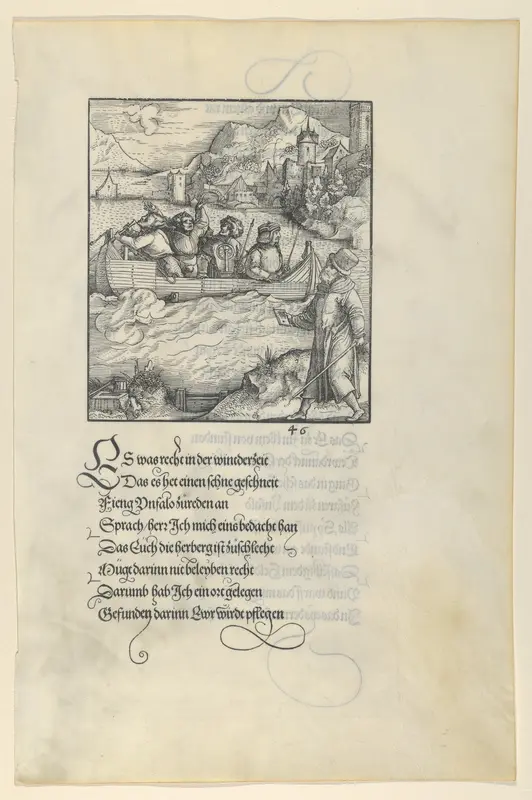 46
ES was recht in der winnderzeit
Das es het einen schne geschneit
Fieng Vnfalo züreden an
Sprach herr Ich mich eins bedacht han
Das Euch die herberg ist züschlecht
Mügt darinn nit beleyben recht
Darumb hab Ich ein ort gelegen
Gefunden darinn Ewr wirdt pflegen